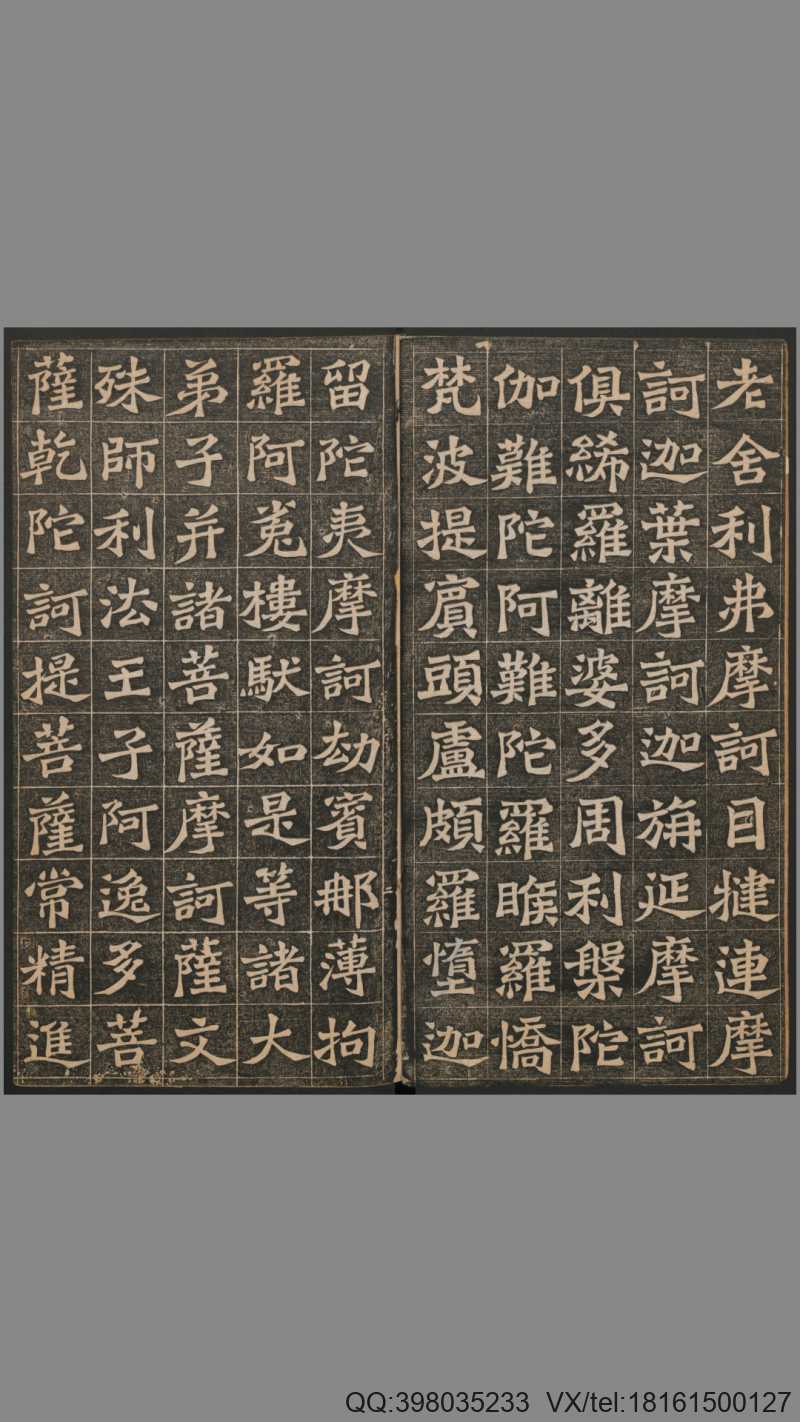 老舍利弗摩訶目揵連摩
訶迦葉摩訶迦旃延摩訶
俱絺羅離婆多周利槃陀
伽難陀阿難陀羅睺羅憍
梵波提賓頭盧頗羅墮迦
留陀夷摩訶劫賓那薄拘
羅阿㝹樓馱如是等諸大
弟子并諸菩薩摩訶薩文
殊師利法王子阿逸多菩
薩乾陀訶提菩薩常精進
QQ:398035233 VX/tel:18161500127